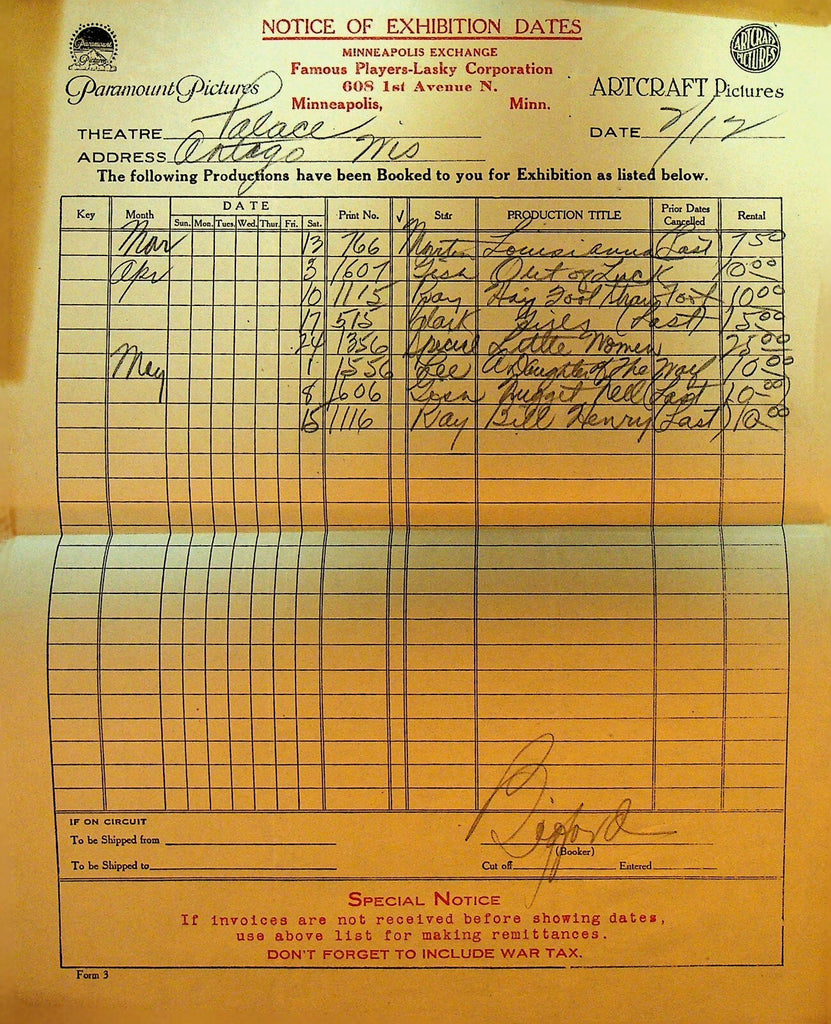 NOTICE OF EXHIBITION DATES
MINNEAPOLIS EXCHANGE
Famous Players-Lasky Corporation
608 1st Avenue N.
Minneapolis, Minn.
Paramount Pictures
Paramount Pictures
ARTCRAFT PICTURES
ARTCRAFT Pictures
THEATRE Palace DATE 2/12
ADDRESS Antago Wis
The following Productions have been Booked to you for Exhibition as listed below.
Key Month DATE Sun. Mon. Tues. Wed. Thur. Fri. Sat. Print No. √ Star PRODUCTION TITLE Prior Dates Cancelled Rental
Mar 13 766 Martin Louisianna (Last 7.50
Apr 3 1607 Gish Out of Luck 10.00
10 1115 Ray Hay Foot Straw Foot 10.00
17 515 Clark Girls (Last) 15.00
24 1356 Special Little Women 25.00
May 1 1556 Lee A Daughter of The Wolf 10.00
8 1606 Gish Nugget Nell (Last 10.00
15 1116 Ray Bill Henry (Last) 10.00
IF ON CIRCUIT
To be Shipped from
To be Shipped to
(Booker)
Cut off Entered
SPECIAL NOTICE
If invoices are not received before showing dates,
use above list for making remittances.
DON'T FORGET TO INCLUDE WAR TAX.
Form 3